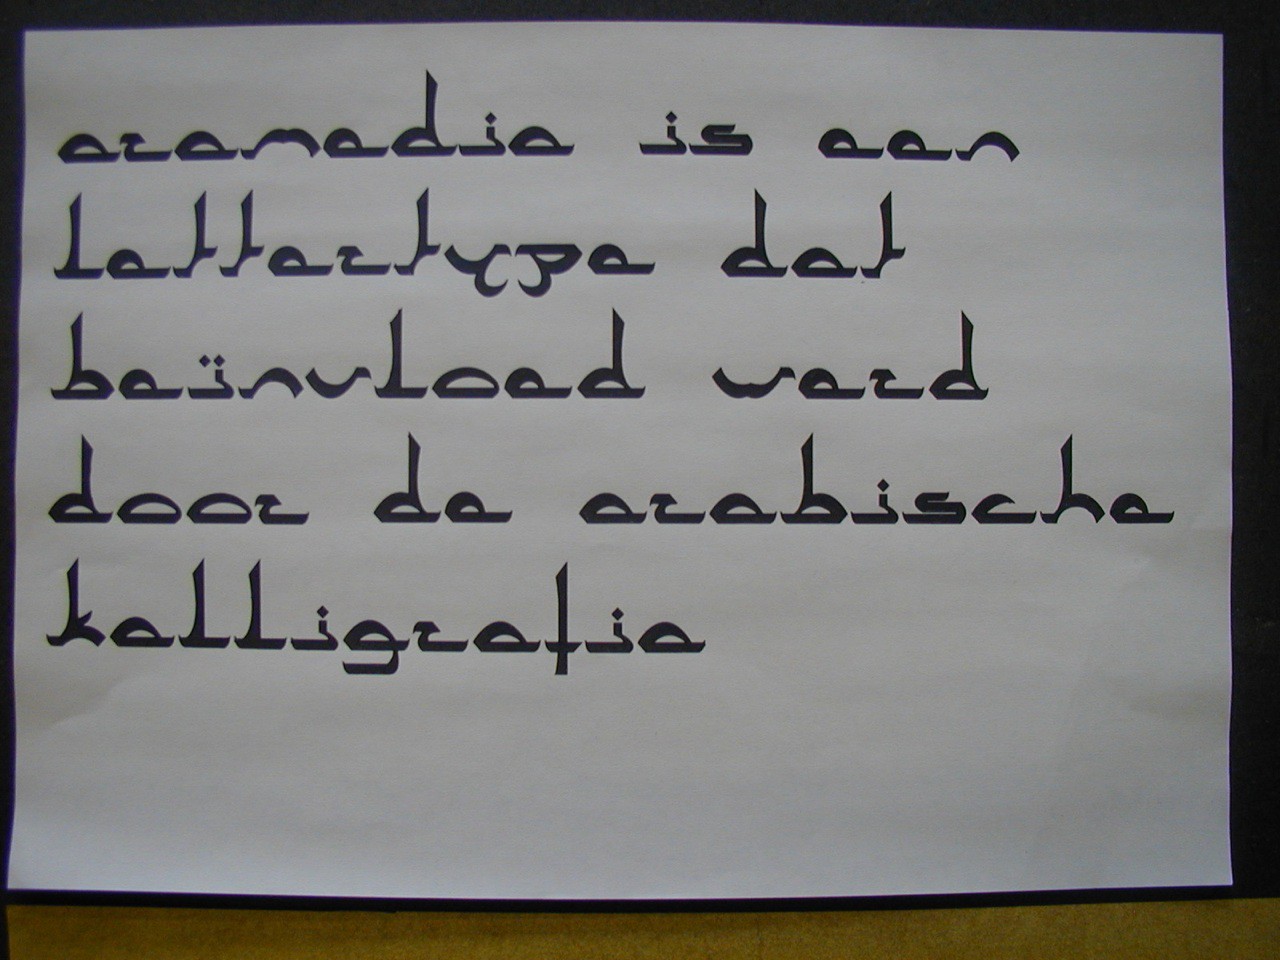 aramedia is een
lettertype dat
beïnvloed werd
door de arabische
kalligrafie